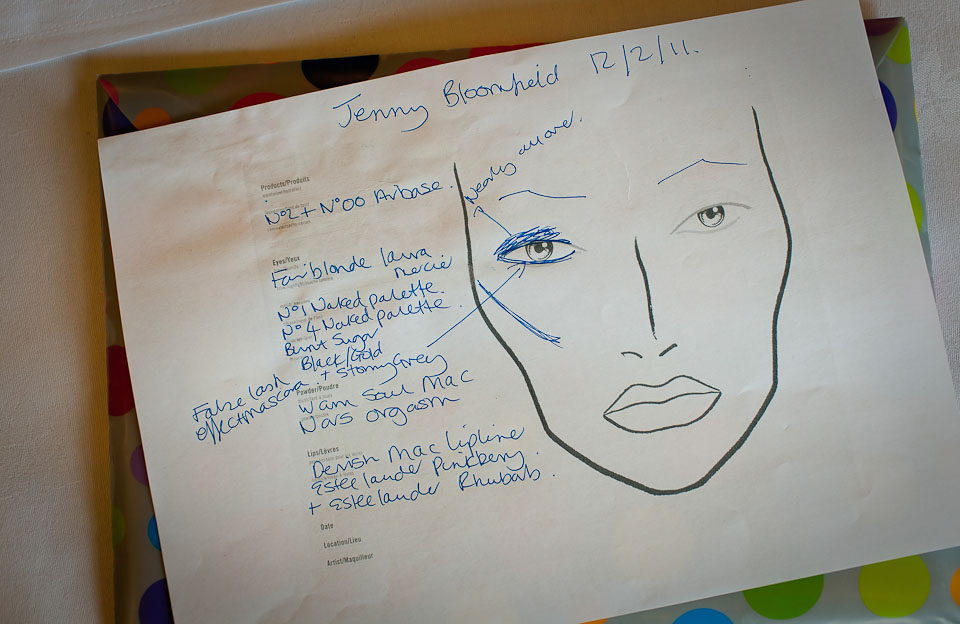 Jenny Bloomfield 12/2/11.
Products/Produits
N°2 + N°00 Airbase.
Nearly all over.
Eyes/Yeux
Fair blonde laura
mercier
N°1 Naked palette.
N°4 Naked palette.
Burnt Sugar
Black/Gold
+ Stormy Grey
False lash
effect mascara
Powder/Poudre
Warm Soul Mac
Nars orgasm
Lips/Lèvres
Dervish Mac lipline
Estee lauder Pinkberry.
+ Estee lauder Rhubab.
Date
Location/Lieu
Artist/Maquilleur